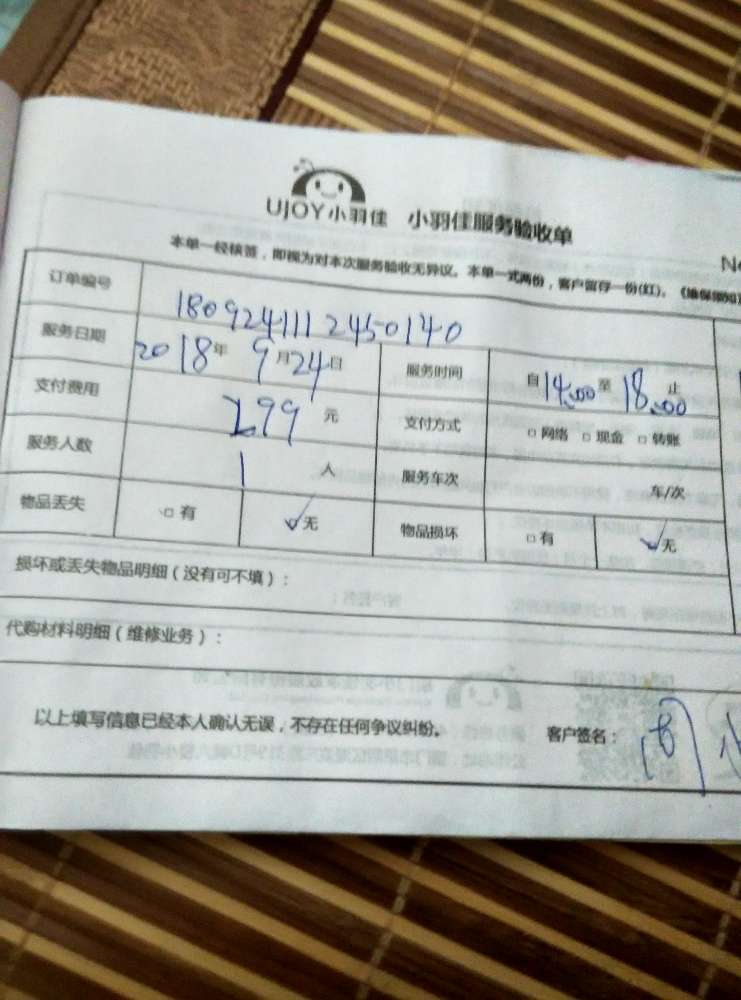 UJOY小羽佳 小羽佳服务验收单
本单一经核签，即视为对本次服务验收无异议。本单一式两份，客户留存一份(红)。《维保须知》
订单编号 1809241112450140
服务日期 2018年9月24日 服务时间 自14:00至18:00止
支付费用 299元 支付方式 □网络 □现金 □转账
服务人数 1人 服务车次 车/次
物品丢失 □有 ☑无 物品损坏 □有 ☑无
损坏或丢失物品明细（没有可不填）：
代购材料明细（维修业务）：
以上填写信息已经本人确认无误，不存在任何争议纠纷。 客户签名：